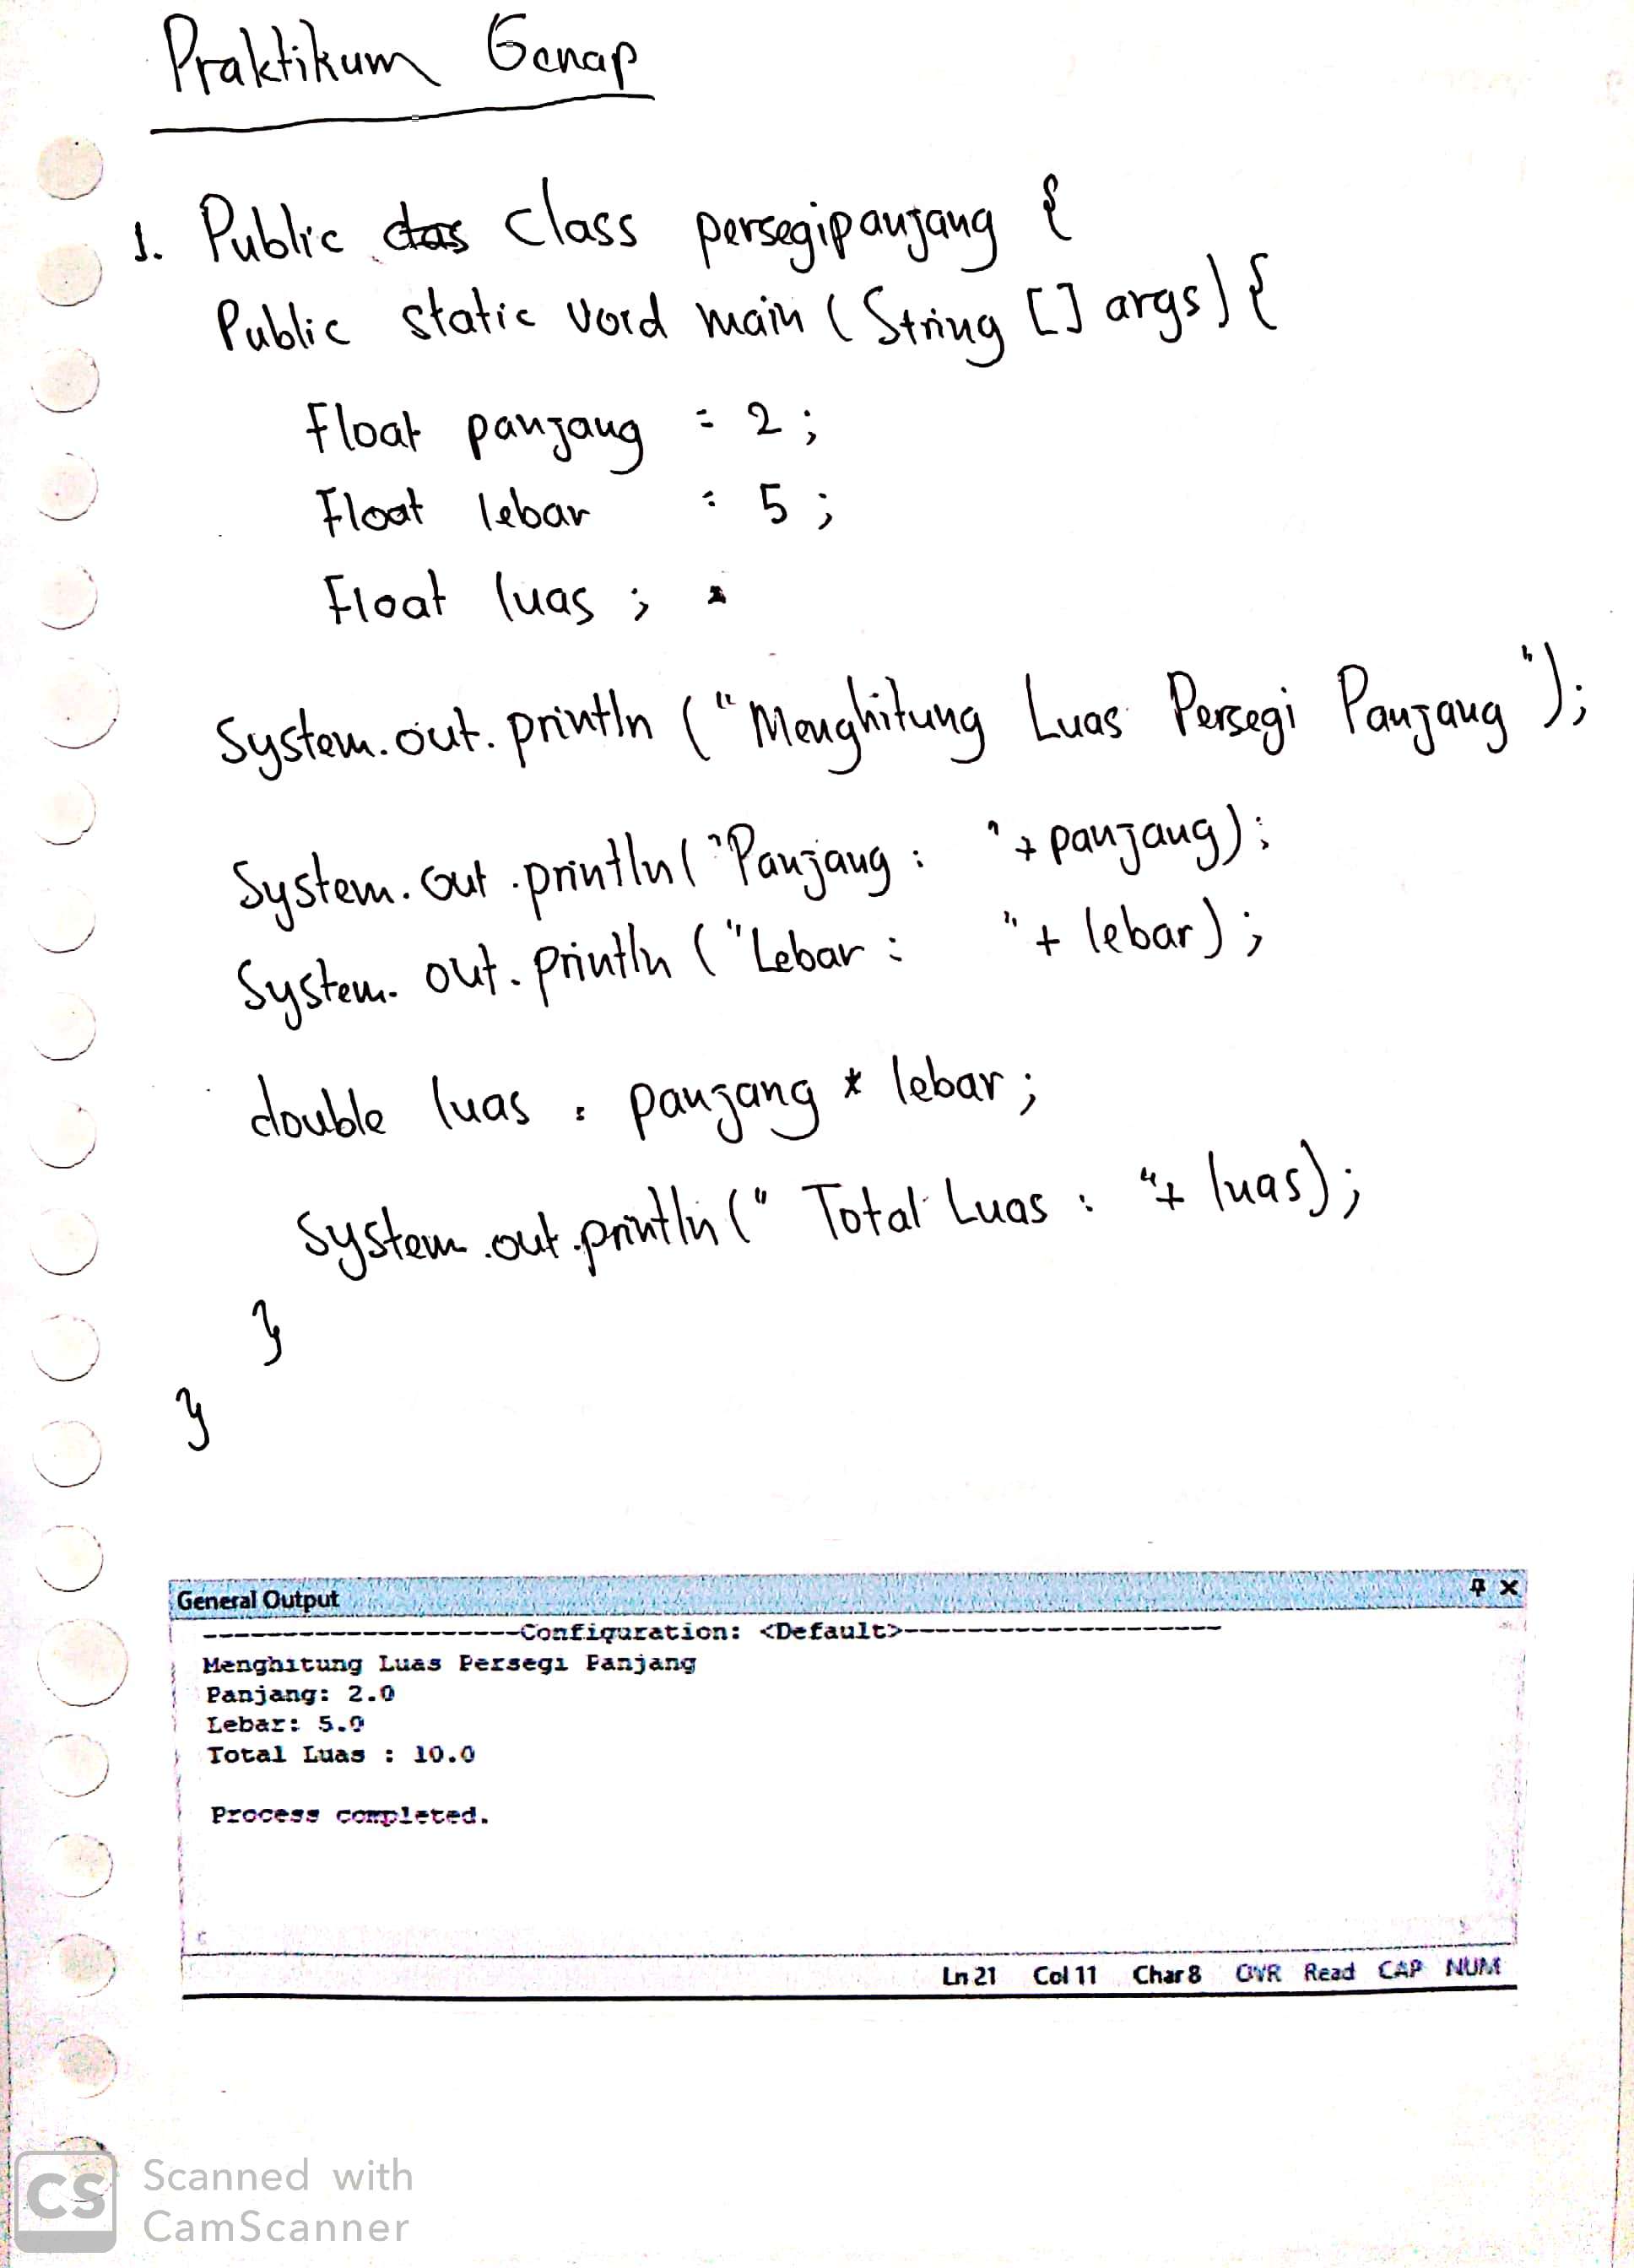 Praktikum Genap
1. Public clas class persegipanjang {
Public static void main (String [] args) {
Float panjang = 2 ;
Float lebar = 5 ;
Float luas ;
System.out.println ("Menghitung Luas Persegi Panjang");
System.out.println("Panjang : "+ panjang);
System.out.println ("Lebar : "+ lebar) ;
double luas = panjang * lebar ;
System.out.println (" Total Luas : "+ luas);
}
}
General Output
--------------------Configuration: <Default>--------------------
Menghitung Luas Persegi Panjang
Panjang: 2.0
Lebar: 5.0
Total Luas : 10.0
Process completed.
Ln 21 Col 11 Char 8 OVR Read CAP NUM
CS Scanned with
CamScanner